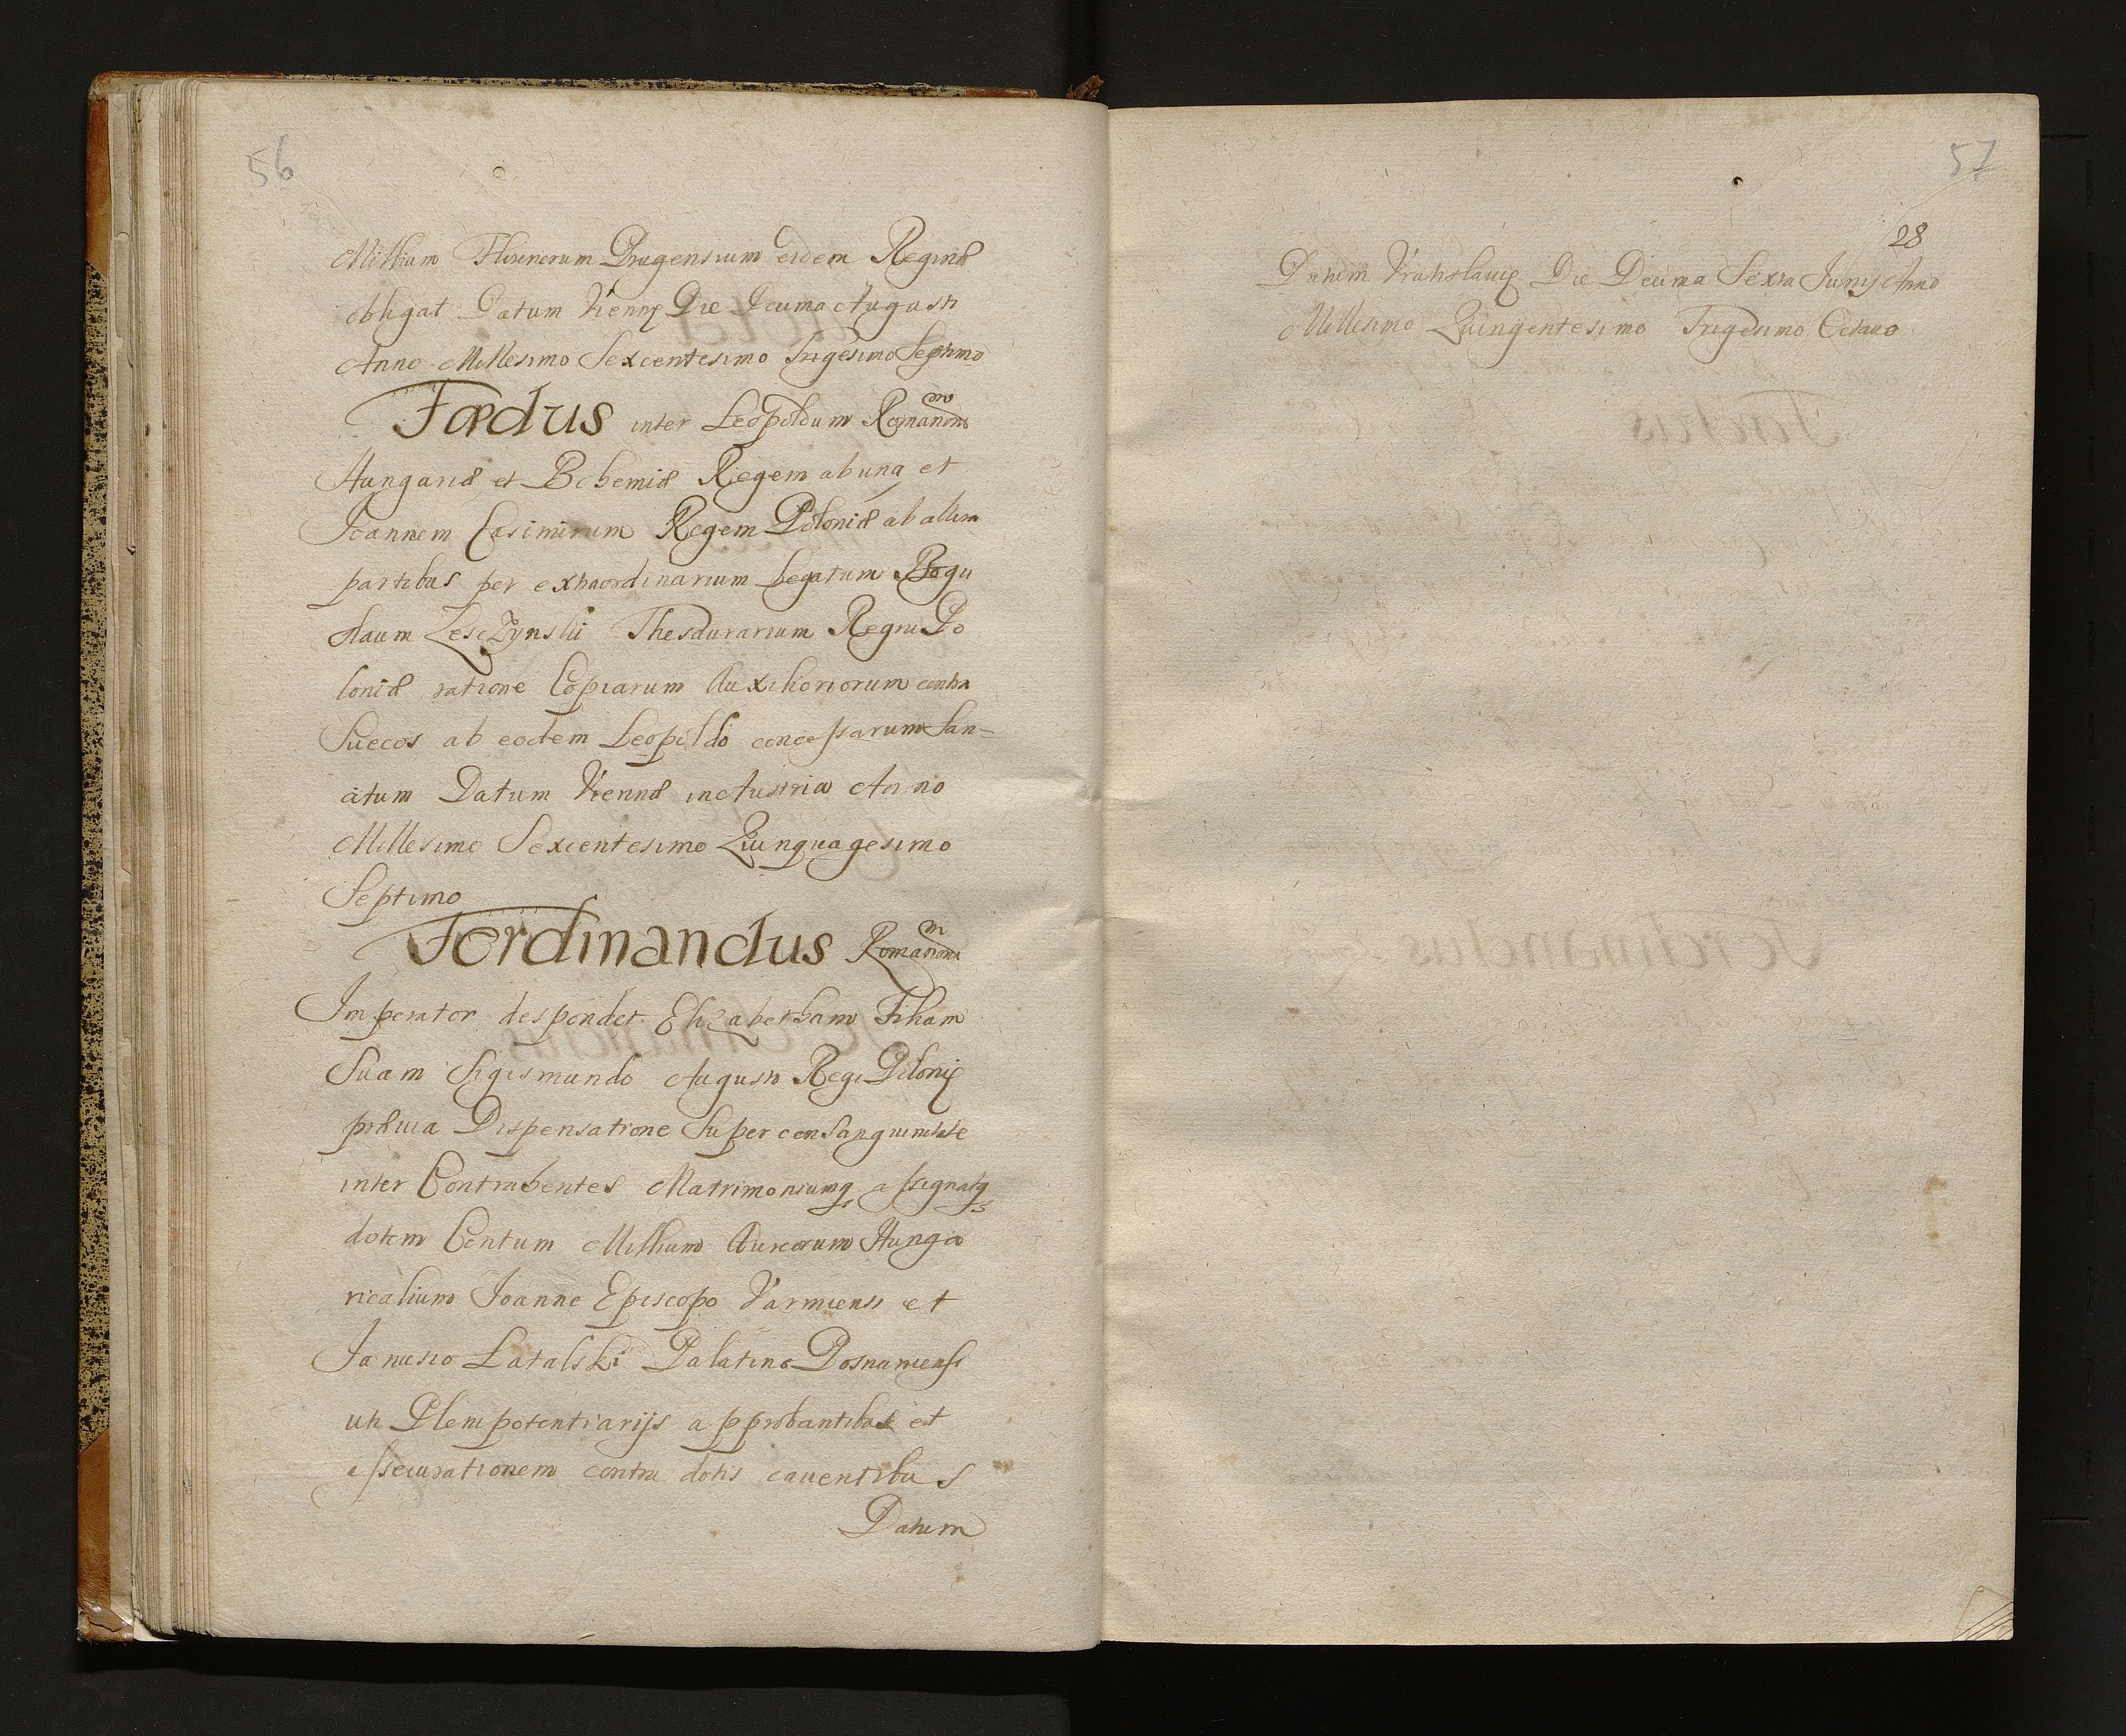 56
Millium Florenorum Pragensium eidem Reginæ
obligat Datum Viennę Die Decima Augusti
Anno Millesimo Sexcentesimo Trigesimo Septimo
Fœdus inter Leopoldum Romanorū
Hungariæ et Bohemiæ Regem ab una et
Joannem Casimirum Regem Poloniæ ab altera
partibus per extraordinarium Legatum Bogu
slaum Lesczynski Thesaurarium Regni Po
loniæ ratione Copiarum Auxiliariorum contra
Suecos ab eodem Leopoldo concessarum San=
citum Datum Viennæ in Austria Anno
Millesimo Sexcentesimo Quinquagesimo
Septimo
Ferdinandus Romanorū
Imperator despondet Elizabetham Filiam
Suam Sigismundo Augusto Regi Polonię
præuia Dispensatione Super consanguinitate
inter Contrahentes Matrimoniumq assignatq
dotem Centum Millium Aureorum Hunga
ricalium Joanne Episcopo Varmiensi et
Janusio Latalski Palatino Posnaniensi
uti Plenipotentiarijs approbantibus et
assecurationem contra dotis cauentibus
Datum
57
28
Datum Vratislauię Die Decima Sexta Junij Anno
Millesimo Quingentesimo Trigesimo Octauo